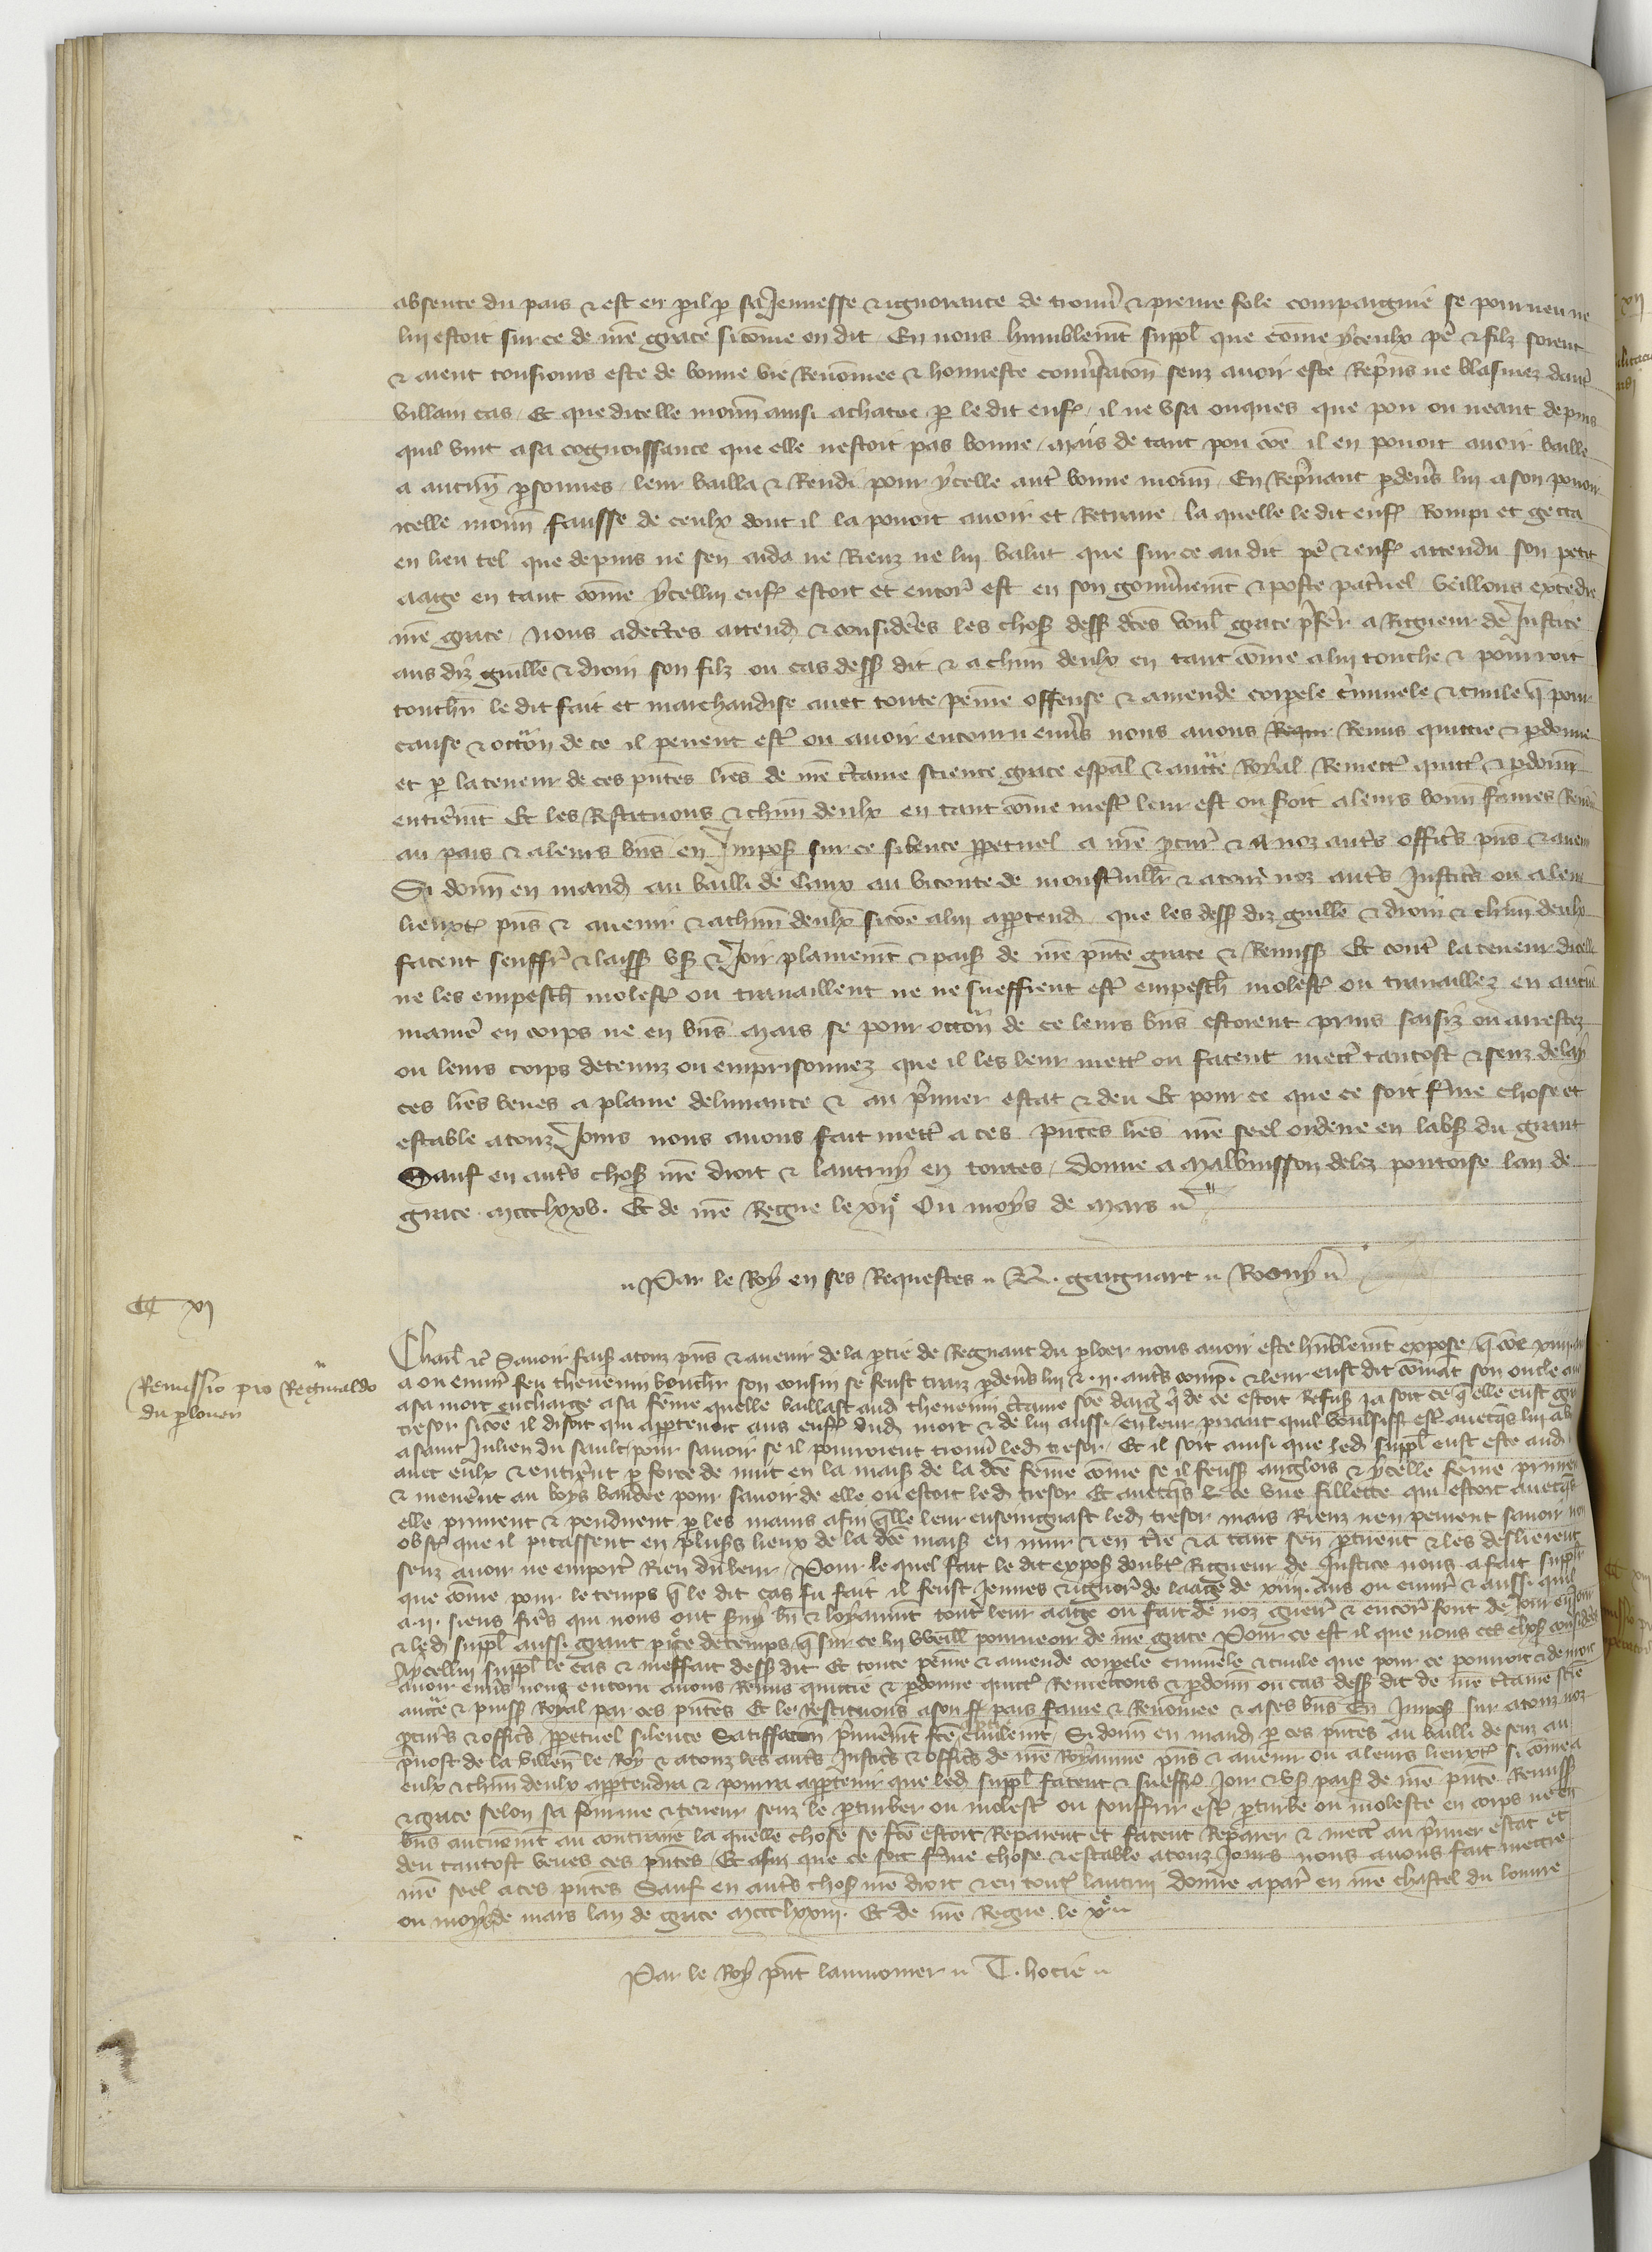 absente du pais & est en pil p sa Jeunesse & ignorance de trouũ & prenre fole compaignie se pourueu ne
lui estoit sur ce de nr̃e grace si cõme on dit En nous humblemt̃ suppl̃ que cõme yceulx pẽ & filz soient
& aient tousiours este de bonne vie Renõmee & honneste conũsatõn senz auoir este Repñs ne blasmez dautr̃
villain cas Et que dicelle monñ ainsi achatee p le dit enf̃ il ne vsa onques que pou ou neant depuis
quil vint a sa cognoissance que elle nestoit pas bonne Mais de tant pou cõe il en pouoit auoir baille
a aucuñ psonnes leur bailla & Rendi pour ycelle autr̃ bonne monñ En Repñant pdeũs lui a son pouoir
icelle monñ fausse de ceulx dont il la pouoit auoir et Retraire la quelle le dit enf̃ Rompi et getta
en lieu tel que depuis ne sen aida ne Rienz ne lui valut que sur ce au dit pẽ & enf̃ attendu son petit
aage en tant cõme ycellui enf̃ estoit et encor̃ est en son gouũnemt̃ & poste pat̃nel veillons extendre
nr̃e grace Nous adectes attend̃ & considẽes les chos̃ dess̃ dc̃es voul̃ grace pf̃er̃ a Rigueur de Justice
aus diz guille & dioni son filz ou cas dess̃ dit & a chũn deulx en tant cõme a lui touche & pourroit
touch̃r le dit fait et marchandise auec toute peinne offense & amende corpele c̃minele & ciuile q̃ pour
cause & occõn de ce il peuent est̃ ou auoir encouru enũs nous auons Remis quittie & pdonne
et p la teneur de ces pñtes lr̃es de nr̃e c̃taine science grace esp̃al & auc̃te Royal Remett̃ quitt̃ & pdonñ
entiẽmt̃ Et les Restituons & chũn deulx en tant cõme mest̃ leur est ou soit a leurs bonñ fames Renõ
au pais & a leurs bñs en Impos̃ sur ce silence ppetuel a nr̃e pcur̃ & a noz autr̃s offic̃rs pñs & auen
Si donñ en mand̃ au bailli de Caux au viconte de monst̃uill̃r & a touz noz autr̃s Justic̃rs ou a leurs
lieuxt̃ pñs & auenir & a chũn deulx si cõe a lui apptend̃ que les dess̃ diz guille & dioni & chũn deulx
facent seuffr̃ & laiss̃ vs̃ & Joir plainemt̃ & pais̃ de nr̃e pñte grace & Remiss̃ Et cont̃ la teneur dicelle
ne les empesch̃ molest̃ ou trauaillent ne ne sueffrent est̃ empesch̃ molest̃ ou trauaillez en aucun̄
manir̃e en corps ne en bñs Mais se pour occõn de ce leurs bñs estoient prins saisiz ou arrestez
ou leurs corps detenuz ou emprisonnez que il les leur mett̃ ou facent mectr̃ tantost & senz delay
ces lr̃es veues a plaine deliurance & au pm̃ier estat & deu Et pour ce que ce soit fm̃e chose et
estable a touz Jours nous auons fait mett̃ a ces pñtes lr̃es nr̃e seel ordene en labs̃ du grant
Sauf en autr̃s chos̃ nr̃e droit & lautruy en toutes Donne a Malbuisson delez pontoise lan de
grace Mccclxxv. Et de nr̃e Regne le xiie Ou moys de Mars
Par le Roy en ses Requestes . gaignart Rony
CC xi
Remissio pro Reginaldo
du plouer
Charl̃ &c̃ Sauoir fais̃ a touz pñs & auenir de la ptie de Regnaut du plouer nous auoir este hũblemt̃ expose q̃ cõe xiiij ans
a ou enuir̃ feu theuenin bouchr̃ son cousin se feust traiz pdeũs lui & .ij. autr̃s comp̃. & leur eust dit cõmt̃ son oncle auoit
a sa mort encharge a sa fẽme quelle baillast aud̃ theuenin c̃taine sõe darg̃t de ce estoit Refus̃ Ja soit ce q̃ elle eust gr̃nt
tresor si cõe il disoit qui apptenoit aus enf̃ dud̃ mort & de lui aussi en leur priant quil voulsiss̃ est̃ auecq̃s lui al̃
a saint Julien du sault pour sauoir se il pourroient trouũ led̃ tresor Et il soit ainsi que led̃ suppl̃ eust este aud̃
auec eulx & entrẽrnt p force de nuit en la mais̃ de la dc̃e fẽme cõme se il feuss̃ anglois & ycelle fẽme prinrent
& menẽnt au boys bandee pour sauoir de elle ou estoit led̃ tresor Et auecq̃s ce vne fillette qui estoit auecq̃s
elle prinrent & pendirent p les mains afin q̃lle leur enseingnast led̃ tresor mais Rienz nen peurent sauoir non
obst̃ que il picassent en plus̃s lieux de la dc̃e mais̃ en mur & en t̃re & a tant sen ptirent & les deslierent
senz auoir ne emport̃ Rien du leur Pour le quel fait le dit expos̃ doubt̃ Rigueur de Justice nous a fait suppl̃r
que cõme pour le temps q̃ le dit cas fu fait il feust Jeunes & ignor̃ de laage de xiiij. ans ou enuir̃ & aussi quil
a .ij. siens fr̃es qui nous ont s̃uy bñ & loyaumt̃ tout leur aage ou fait de noz guerr̃ & encor̃ font de Jour en Jour
& led̃ suppl̃ aussi grant piẽce de temps q̃ sur ce lui vueill̃ pourueoir de nr̃e grace Pour ce est il que nous ces chos̃ considẽes
A ycellui suppl̃ le cas & meffait dess̃ dit Et toute peinne & amende corpele c̃minele & ciuile que pour ce pourroit
auoir enũs nous encoru auons Remis quittie & pdonne quitt̃ Remectons & pdonñ ou cas dess̃ dit de nr̃e c̃taine scien̄
auc̃te & puiss̃ Royal par ces pñtes Et le Restituons a son pais fame & Renõmee & a ses bñs En Impos̃ sur a touz noz
pcurs̃ & offic̃rs ppetuel silence Satiffaccon pm̃ieremt̃ fc̃e ciuilemt̃ Si donñ en mand̃ p ces pñtes au bailli de senz au
pũost de la villeñ le Roy & a touz les autr̃s Justic̃rs & offic̃rs de nr̃e Royaume pñs & auenir ou a leurs lieuxt̃ si cõme a
eulx & chũn deulx apptendra & pourra apptenir que led̃ suppl̃ facent & sueff̃r Joir & vs̃ pais̃ de nr̃e pñte Remiss̃
& grace selon sa fourme & teneur senz le pturber ou molest̃ ou souffrir est̃ pturbe ou moleste en corps ne en
bñs aucunemt̃ au contraire la quelle chose se fc̃e estoit Reparent et facent Reparer & mect̃ au pm̃ier estat et
deu tantost veues ces pñtes Et afin que ce soit fm̃e chose & estable a touz Jours nous auons fait mettre
nr̃e seel a ces pñtes Sauf en autr̃s chos̃ nr̃e droit & en tout̃ lautrui Donne a par̃ en nr̃e chastel du louure
ou moys de mars lan de grace Mccclxxiij. Et de nr̃e Regne le xe
Par le Roy pñt laumonier T. hocie